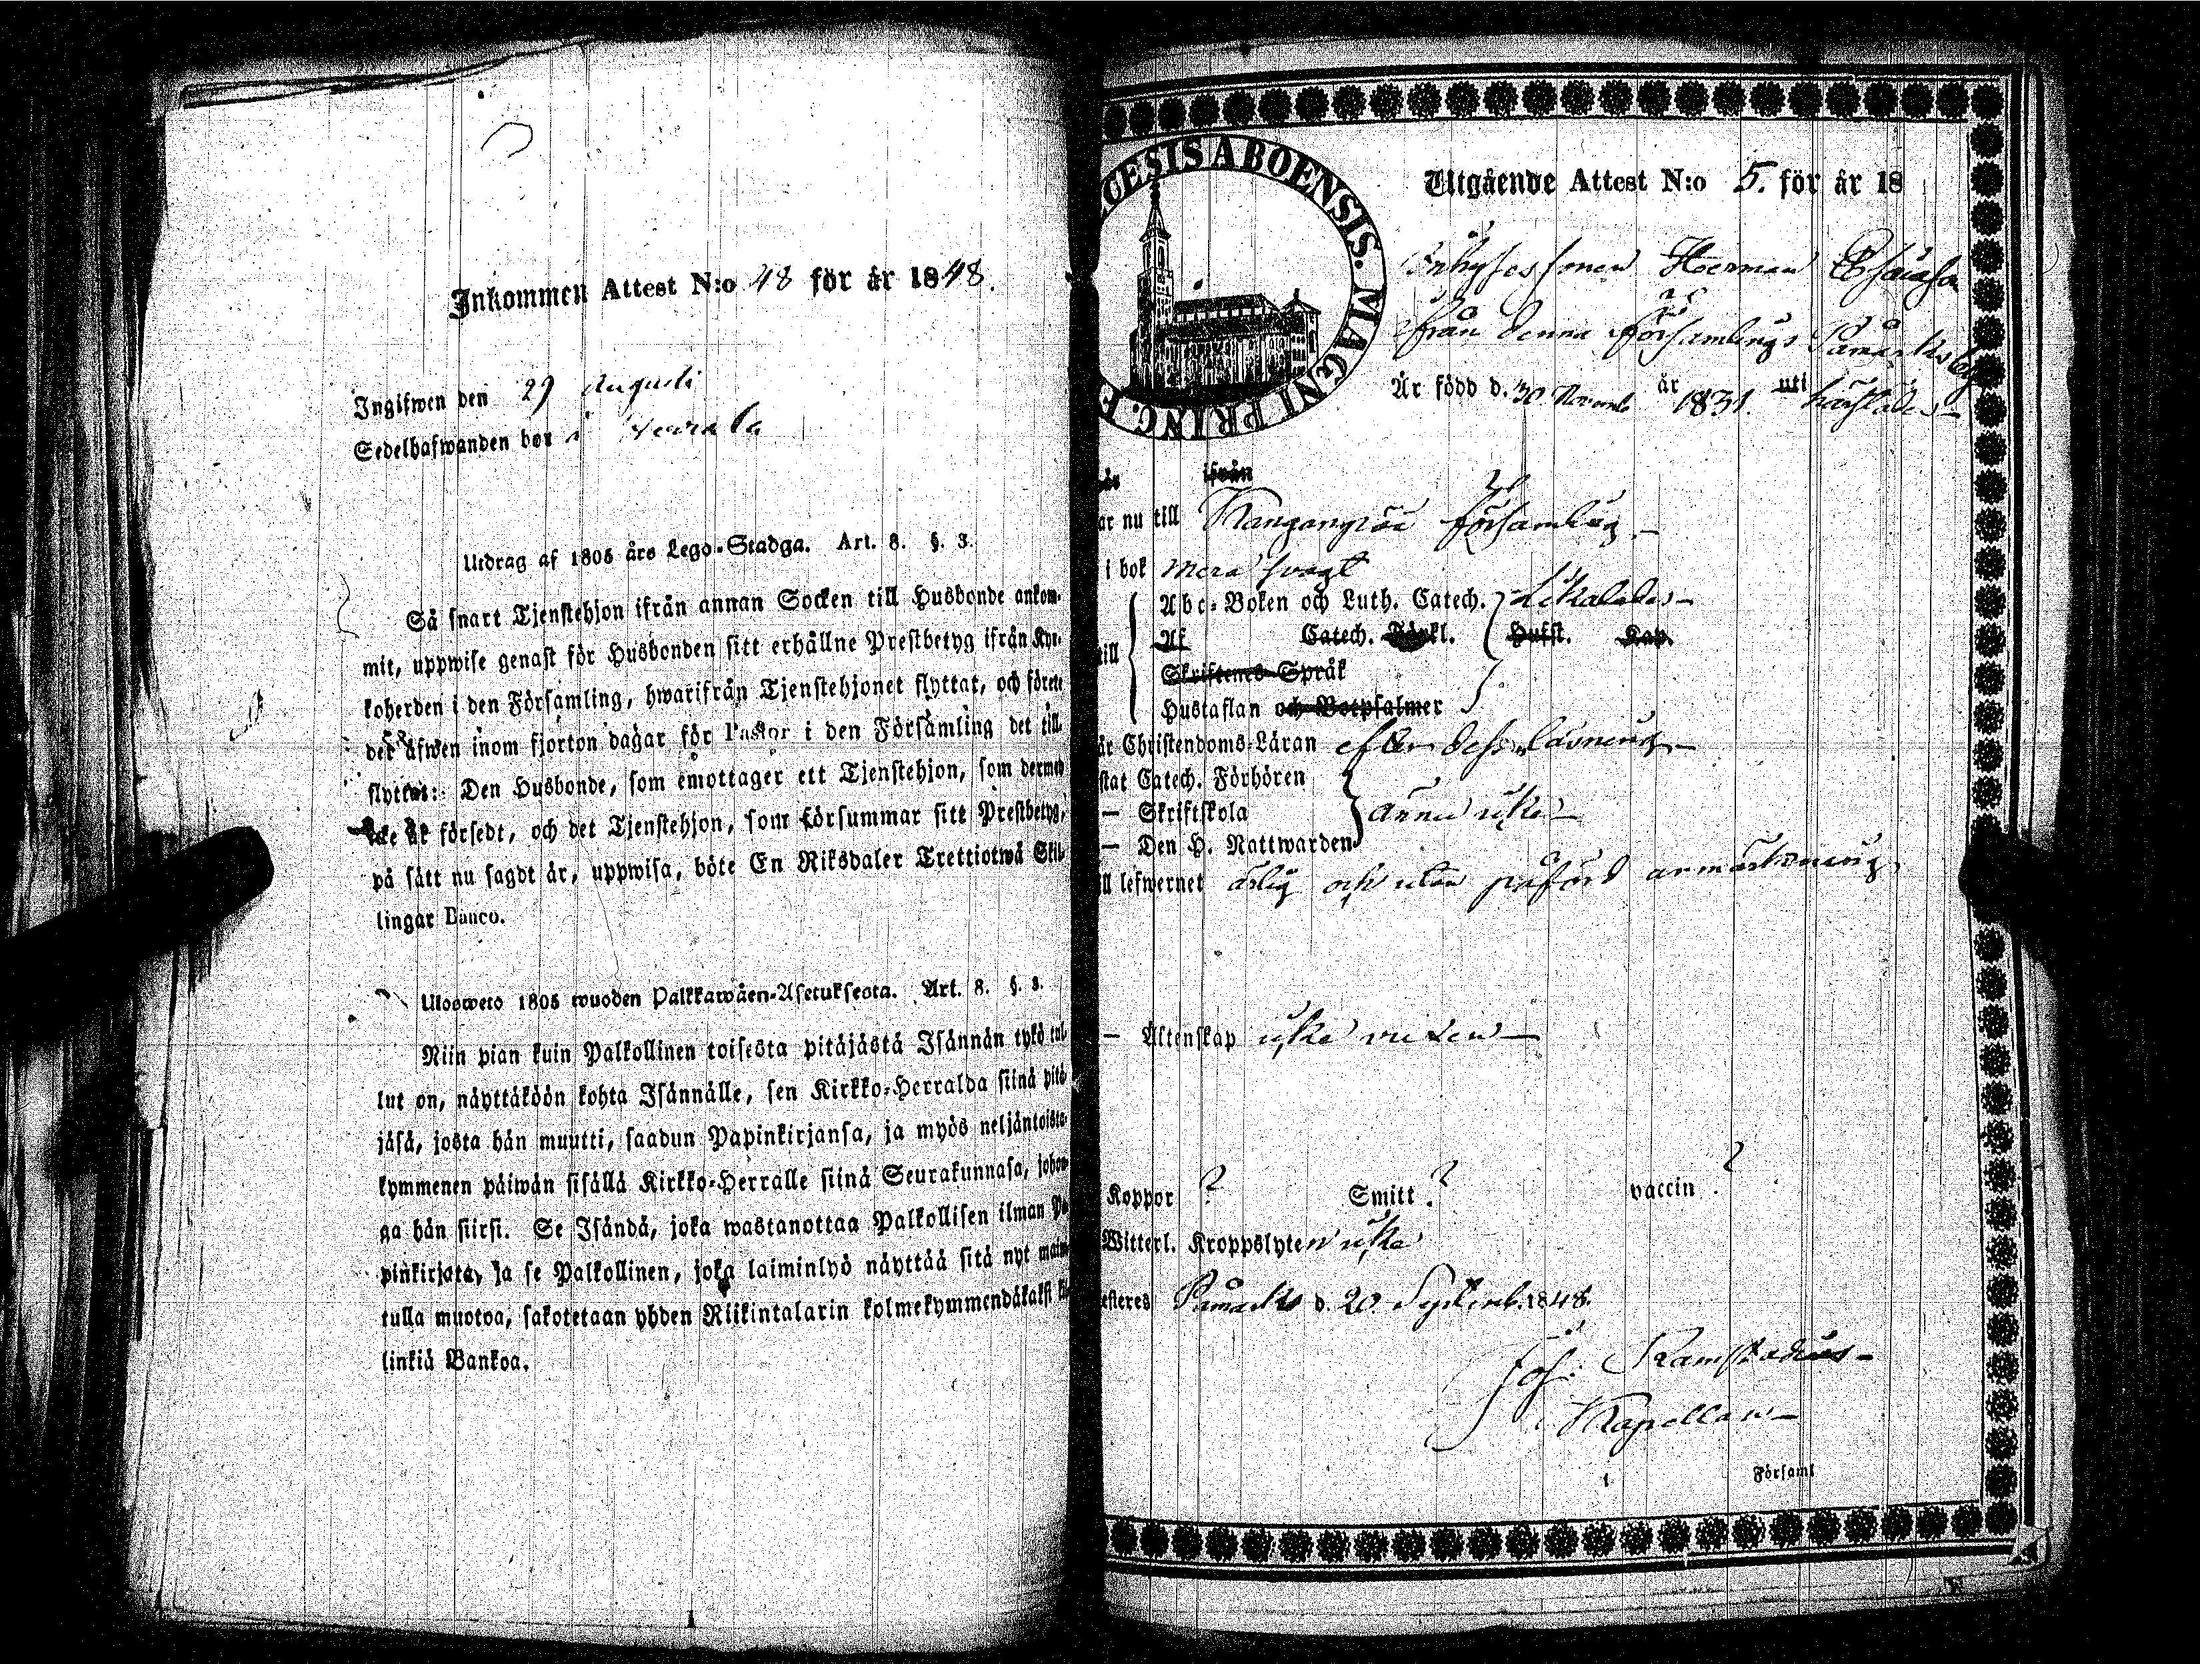 Inkommen Attest N:o 48 för år 1848.
Ingifwen den 29 Augusti
Sedelhafwanden bor i
Utdrag af 1805 års Lego-Stadga. Art. 8. §. 3.
Så snart Tjenstehjon ifrån annan Socken till Husbonde ankom-
mit, uppwise genast för Husbonden sitt erhållne Prestbetyg ifrån Kyr-
koherden i den Församling, hwarifrån Tjenstehjonet flyttat, och förete
det äfwen inom fjorton dagar för Pastor i den Församling det till-
flyttat: Den Husbonde, som emottager ett Tjenstehjon, som dermed
icke är försedt, och det Tjenstehjon, som försummar sitt Prestbetyg,
på sätt nu sagdt är, uppwisa, böte En Riksdaler Trettiotwå Skil-
lingar Banco.
Ulosweto 1805 wuoden Palkkawäen-Asetuksesta. Art. 8. §. 3.
Niin pian kuin Palkollinen toisesta pitäjästä Isännän tykö tul-
lut on, näyttäköön kohta Isännälle, sen Kirkko-Herralda siinä pitä-
jäsä, josta hän muutti, saadun Papinkirjansa, ja myös neljäntoista-
kymmenen päiwän sisällä Kirkko-Herralle siinä Seurakunnasa, johon-
ga hän siirsi. Se Isändä, joka wastanottaa Palkollisen ilman Pa-
pinkirjata, ja se Palkollinen, joka laiminlyö näyttää sitä nyt mai-
tulla muotoa, sakotetaan yhden Riikintalarin kolmekymmendäkaksi kil-
linkiä Bankoa.
CESIS ABOENSIS. MAGNI PRINC. F
Utgående Attest N:o 5. för år 18
Inhyses sonen Herman Esaiasson
från denna församlings Påmarks by
Är född d. 30 Novemb år 1831 uti härstädes
ifrån
ar nu till Kangangräe församling
i bok mera svagt
Abc-Boken och Luth. Catech.
Af Catech. Förkl. Husst. Kap.
till
Skriftenes Språk
Hustaflan och Botpsalmer
är Christendoms-Läran efter dess läsning
stat Catech. Förhören
— Skriftskola ännu icke
— Den H. Nattwarden
ll lefwernet ärlig och utan påförd anmärkning
— Äktenskap icke vuxen
Koppor ? Smitt. ? vaccin ?
Witterl. Kroppslyten icke
esteres Påmark d. 20. Septemb. 1848.
Joh: Ramstadius
Kapellan
Församl